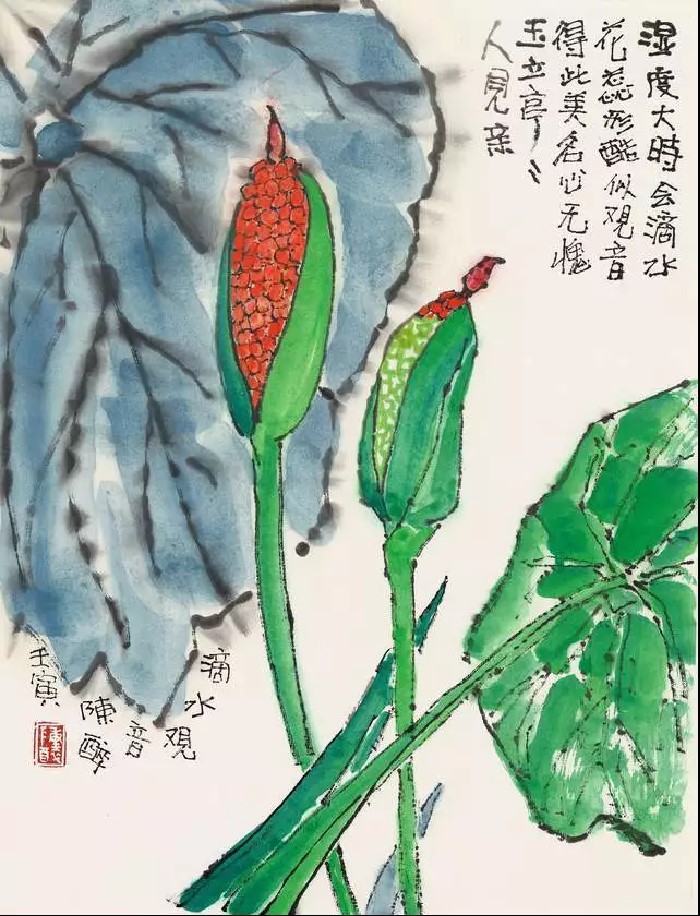 湿度大時会滴水
花蕊形酷似观音
得此美名心无愧
玉立亭〻
人見亲
滴水观音
陳醉
壬寅